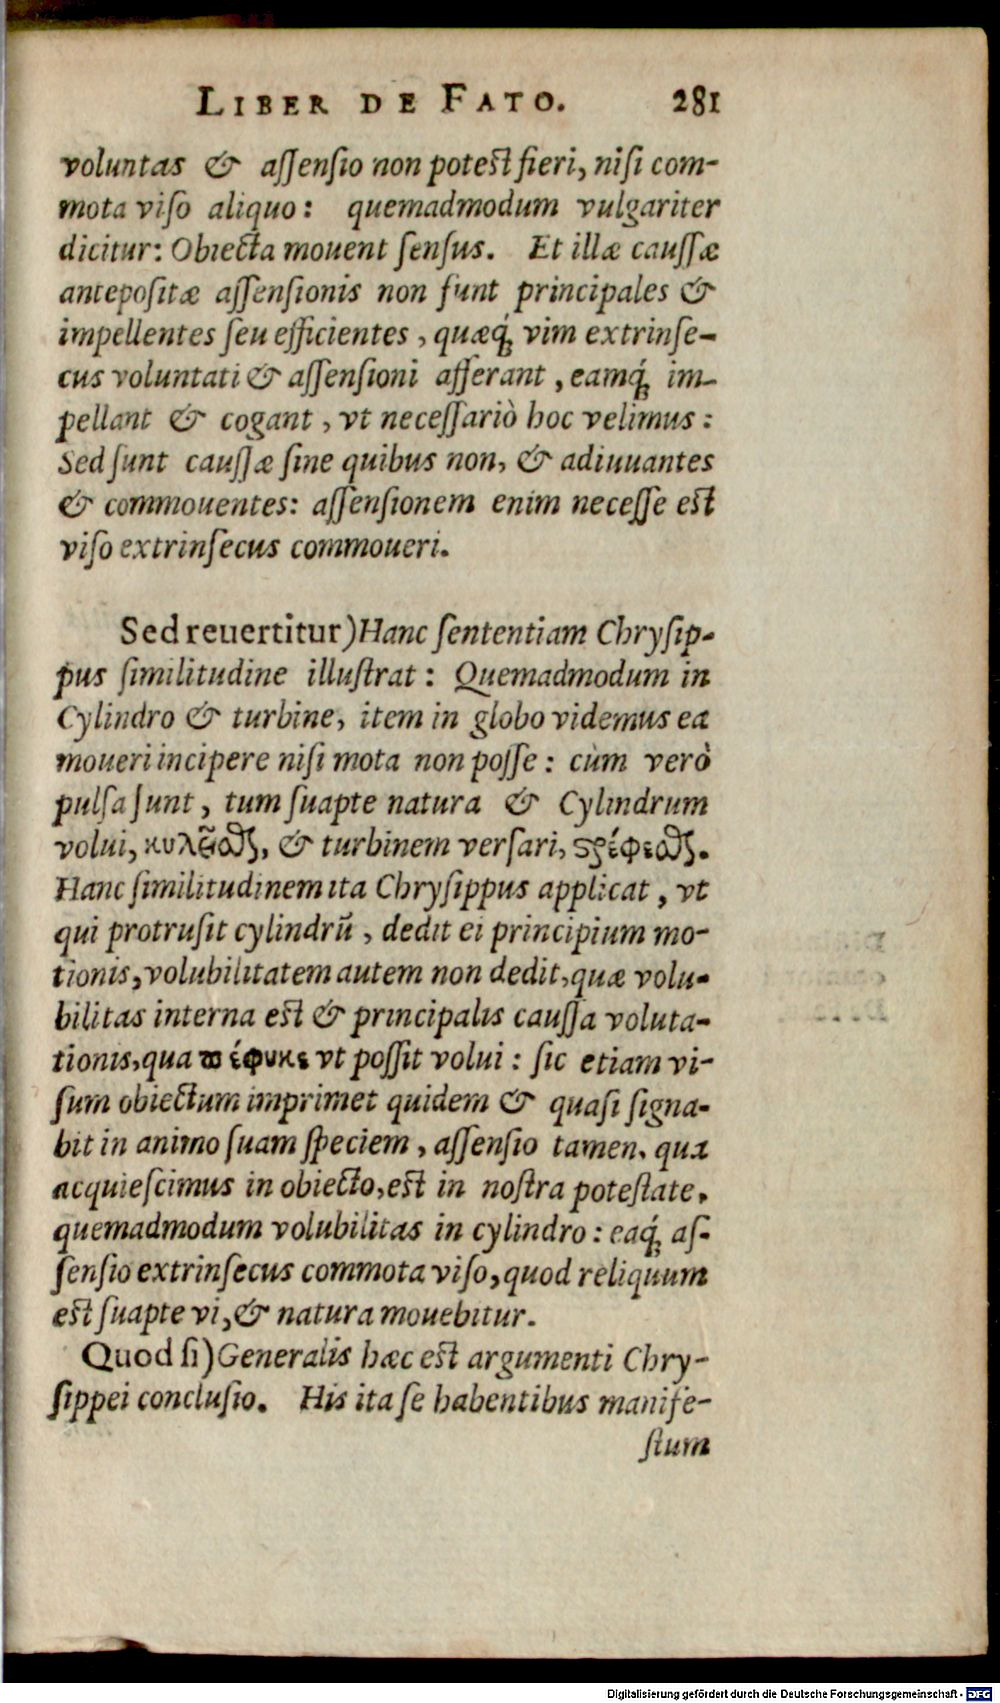 LIBER DE FATO. 281
voluntas & aſſenſio non poteſt fieri, niſi com-
mota viſo aliquo: quemadmodum vulgariter
dicitur: Obiecta mouent ſenſus. Et illæ cauſſæ
antepoſitæ aſſenſionis non ſunt principales &
impellentes ſeu efficientes, quæq́; vim extrinſe-
cus voluntati & aſſenſioni afferant, eamq́; im-
pellant & cogant, vt neceſſariò hoc velimus:
Sed ſunt cauſſæ ſine quibus non, & adiuuantes
& commouentes: aſſenſionem enim neceſſe eſt
viſo extrinſecus commoueri.
Sed reuertitur) Hanc ſententiam Chryſip-
pus ſimilitudine illuſtrat: Quemadmodum in
Cylindro & turbine, item in globo videmus ea
moueri incipere niſi mota non poſſe: cùm verò
pulſa ſunt, tum ſuapte natura & Cylindrum
volui, & turbinem verſari, ςρέφεαζ.
Hanc ſimilitudinem ita Chryſippus applicat, vt
qui protruſit cylindrũ, dedit ei principium mo-
tionis, volubilitatem autem non dedit, quæ volu-
bilitas interna eſt & principalis cauſſa voluta-
tionis, qua πέφυκε vt poſſit volui: ſic etiam vi-
ſum obiectum imprimet quidem & quaſi ſigna-
bit in animo ſuam ſpeciem, aſſenſio tamen, qua
acquieſcimus in obiecto, eſt in noſtra poteſtate,
quemadmodum volubilitas in cylindro: eaq́; aſ-
ſenſio extrinſecus commota viſo, quod reliquum
eſt ſuapte vi, & natura mouebitur.
Quod ſi) Generalis hæc eſt argumenti Chry-
ſippei concluſio. His ita ſe habentibus manife-
ſtum
Digitalisierung gefördert durch die Deutsche Forschungsgemeinschaft - DFG